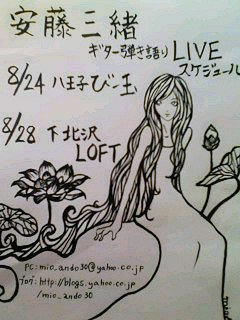 安藤三緒
ギター弾き語り LIVE
スケジュール
8/24 八王子びー玉
8/28 下北沢
LOFT
PC: mio_ando30@yahoo.co.jp
ブログ: http://blogs.yahoo.co.jp
/mio_ando30